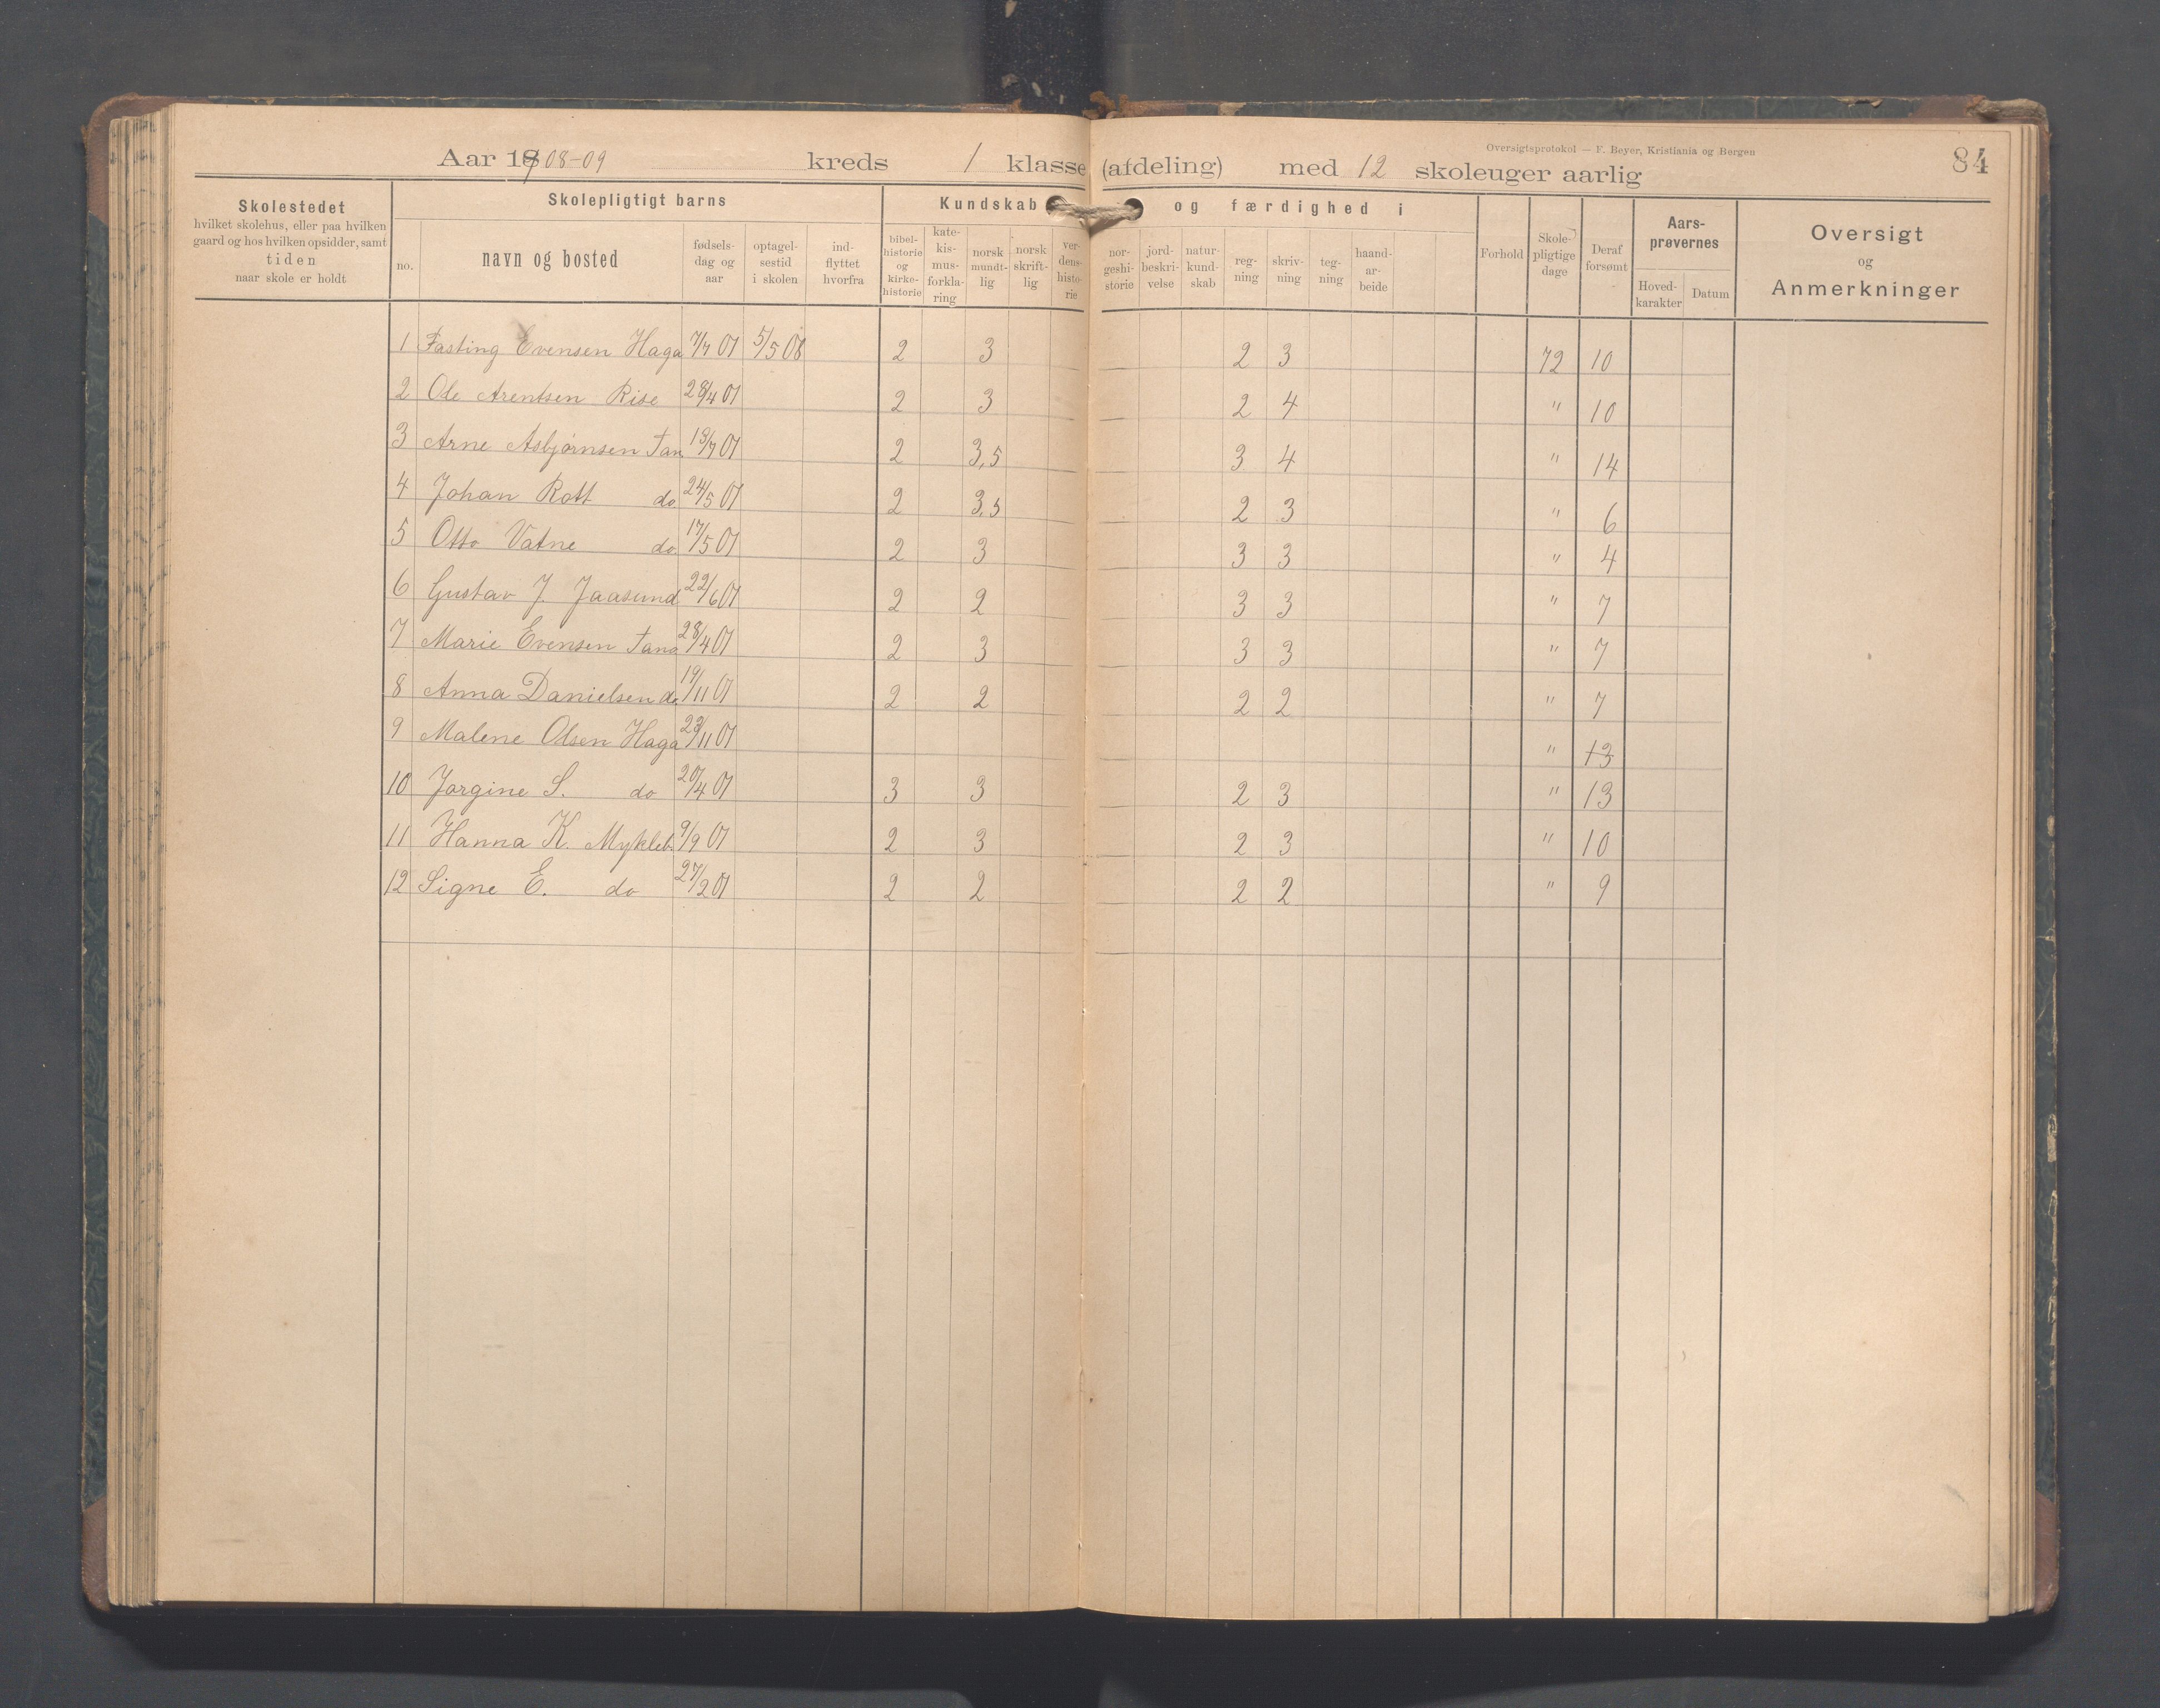 Oversigtsprotokol — F. Beyer, Kristiania og Bergen
84
Aar 1908-09 kreds 1 klasse (afdeling) med 12 skoleuger aarlig
Skolestedet
hvilket skolehus, eller paa hvilken
gaard og hos hvilken opsidder, samt
tiden
naar skole er holdt
Skolepligtigt barns
no.
navn og bosted
fødsels-
dag og
aar
optagel-
sestid
i skolen
ind-
flyttet
hvorfra
Kundskab og færdighed i
bibel-
historie
og
kirke-
historie
kate-
kis-
mus-
forkla-
ring
norsk
mundt-
lig
norsk
skrift-
lig
ver-
dens-
histo-
rie
nor-
geshi-
storie
jord-
beskri-
velse
natur-
kund-
skab
reg-
ning
skriv-
ning
teg-
ning
haand-
ar-
beide
Forhold
Skole-
pligtige
dage
Deraf
forsømt
Aars-
prøvernes
Hoved-
karakter
Datum
Oversigt
og
Anmerkninger
1 Fasting Evensen Haga 7/7 01 5/5 08 2 3 2 3 72 10
2 Ole Arentsen Rise 28/4 01 2 3 2 4 " 10
3 Arne Asbjørnsen Tan 13/7 01 2 3,5 3 4 " 14
4 Johan Rott do 24/5 01 2 3,5 2 3 " 6
5 Otto Vatne do 17/5 01 2 3 3 3 " 4
6 Gustav J. Jaasund 22/6 01 2 2 3 3 " 7
7 Marie Evensen Tana 28/4 01 2 3 3 3 " 7
8 Anna Danielsen do 19/11 01 2 2 2 2 " 7
9 Malene Olsen Haga 23/11 01 " 13
10 Jørgine S. do 20/4 01 3 3 2 3 " 13
11 Hanna K. Mykleb. 9/9 01 2 3 2 3 " 10
12 Signe E. do 27/2 01 2 2 2 2 " 9